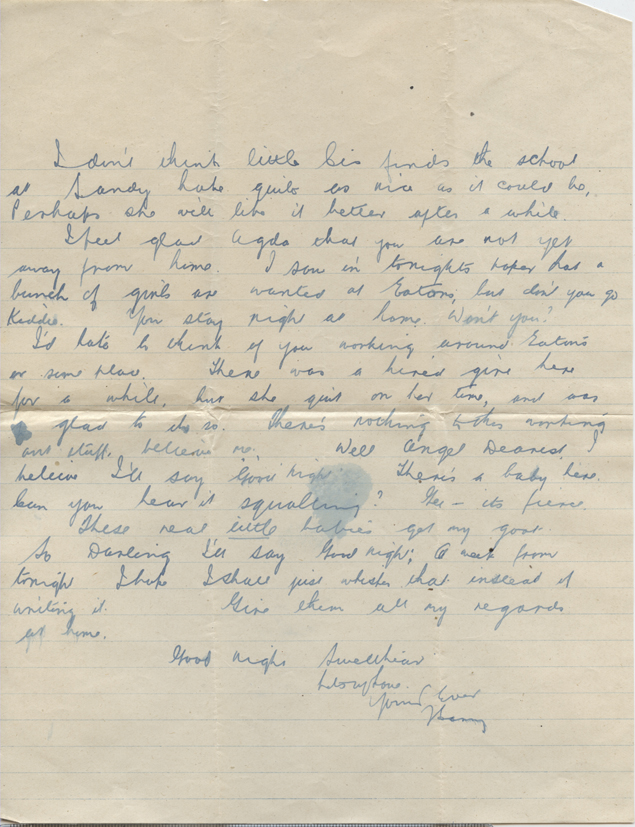 I don't think little sis finds the school
at Sandy Lake quite as nice as it could be,
Perhaps she will like it better after a while.
I feel glad Agda that you are not yet
away from home. I saw in tonights paper that a
bunch of girls are wanted at Eatons, but don't you go
Kiddie. You stay right at home. Won't you?
I'd hate to think of you working around Eatons
or some place. There was a hired girl here
for a while, but she quit on her time, and was
glad to do so. There's nothing to this working
out stuff, believe me. Well Angel Dearest, I
believe I'll say Good Night. There's a baby here.
Can you hear it squalling? Gee - its fierce.
These real little babies get my goat.
So Darling I'll say Good night; A week from
tonight I hope I shall just whisper that instead of
writing it. Give them all my regards
at home.
Good night Sweetheart
Yours Ever